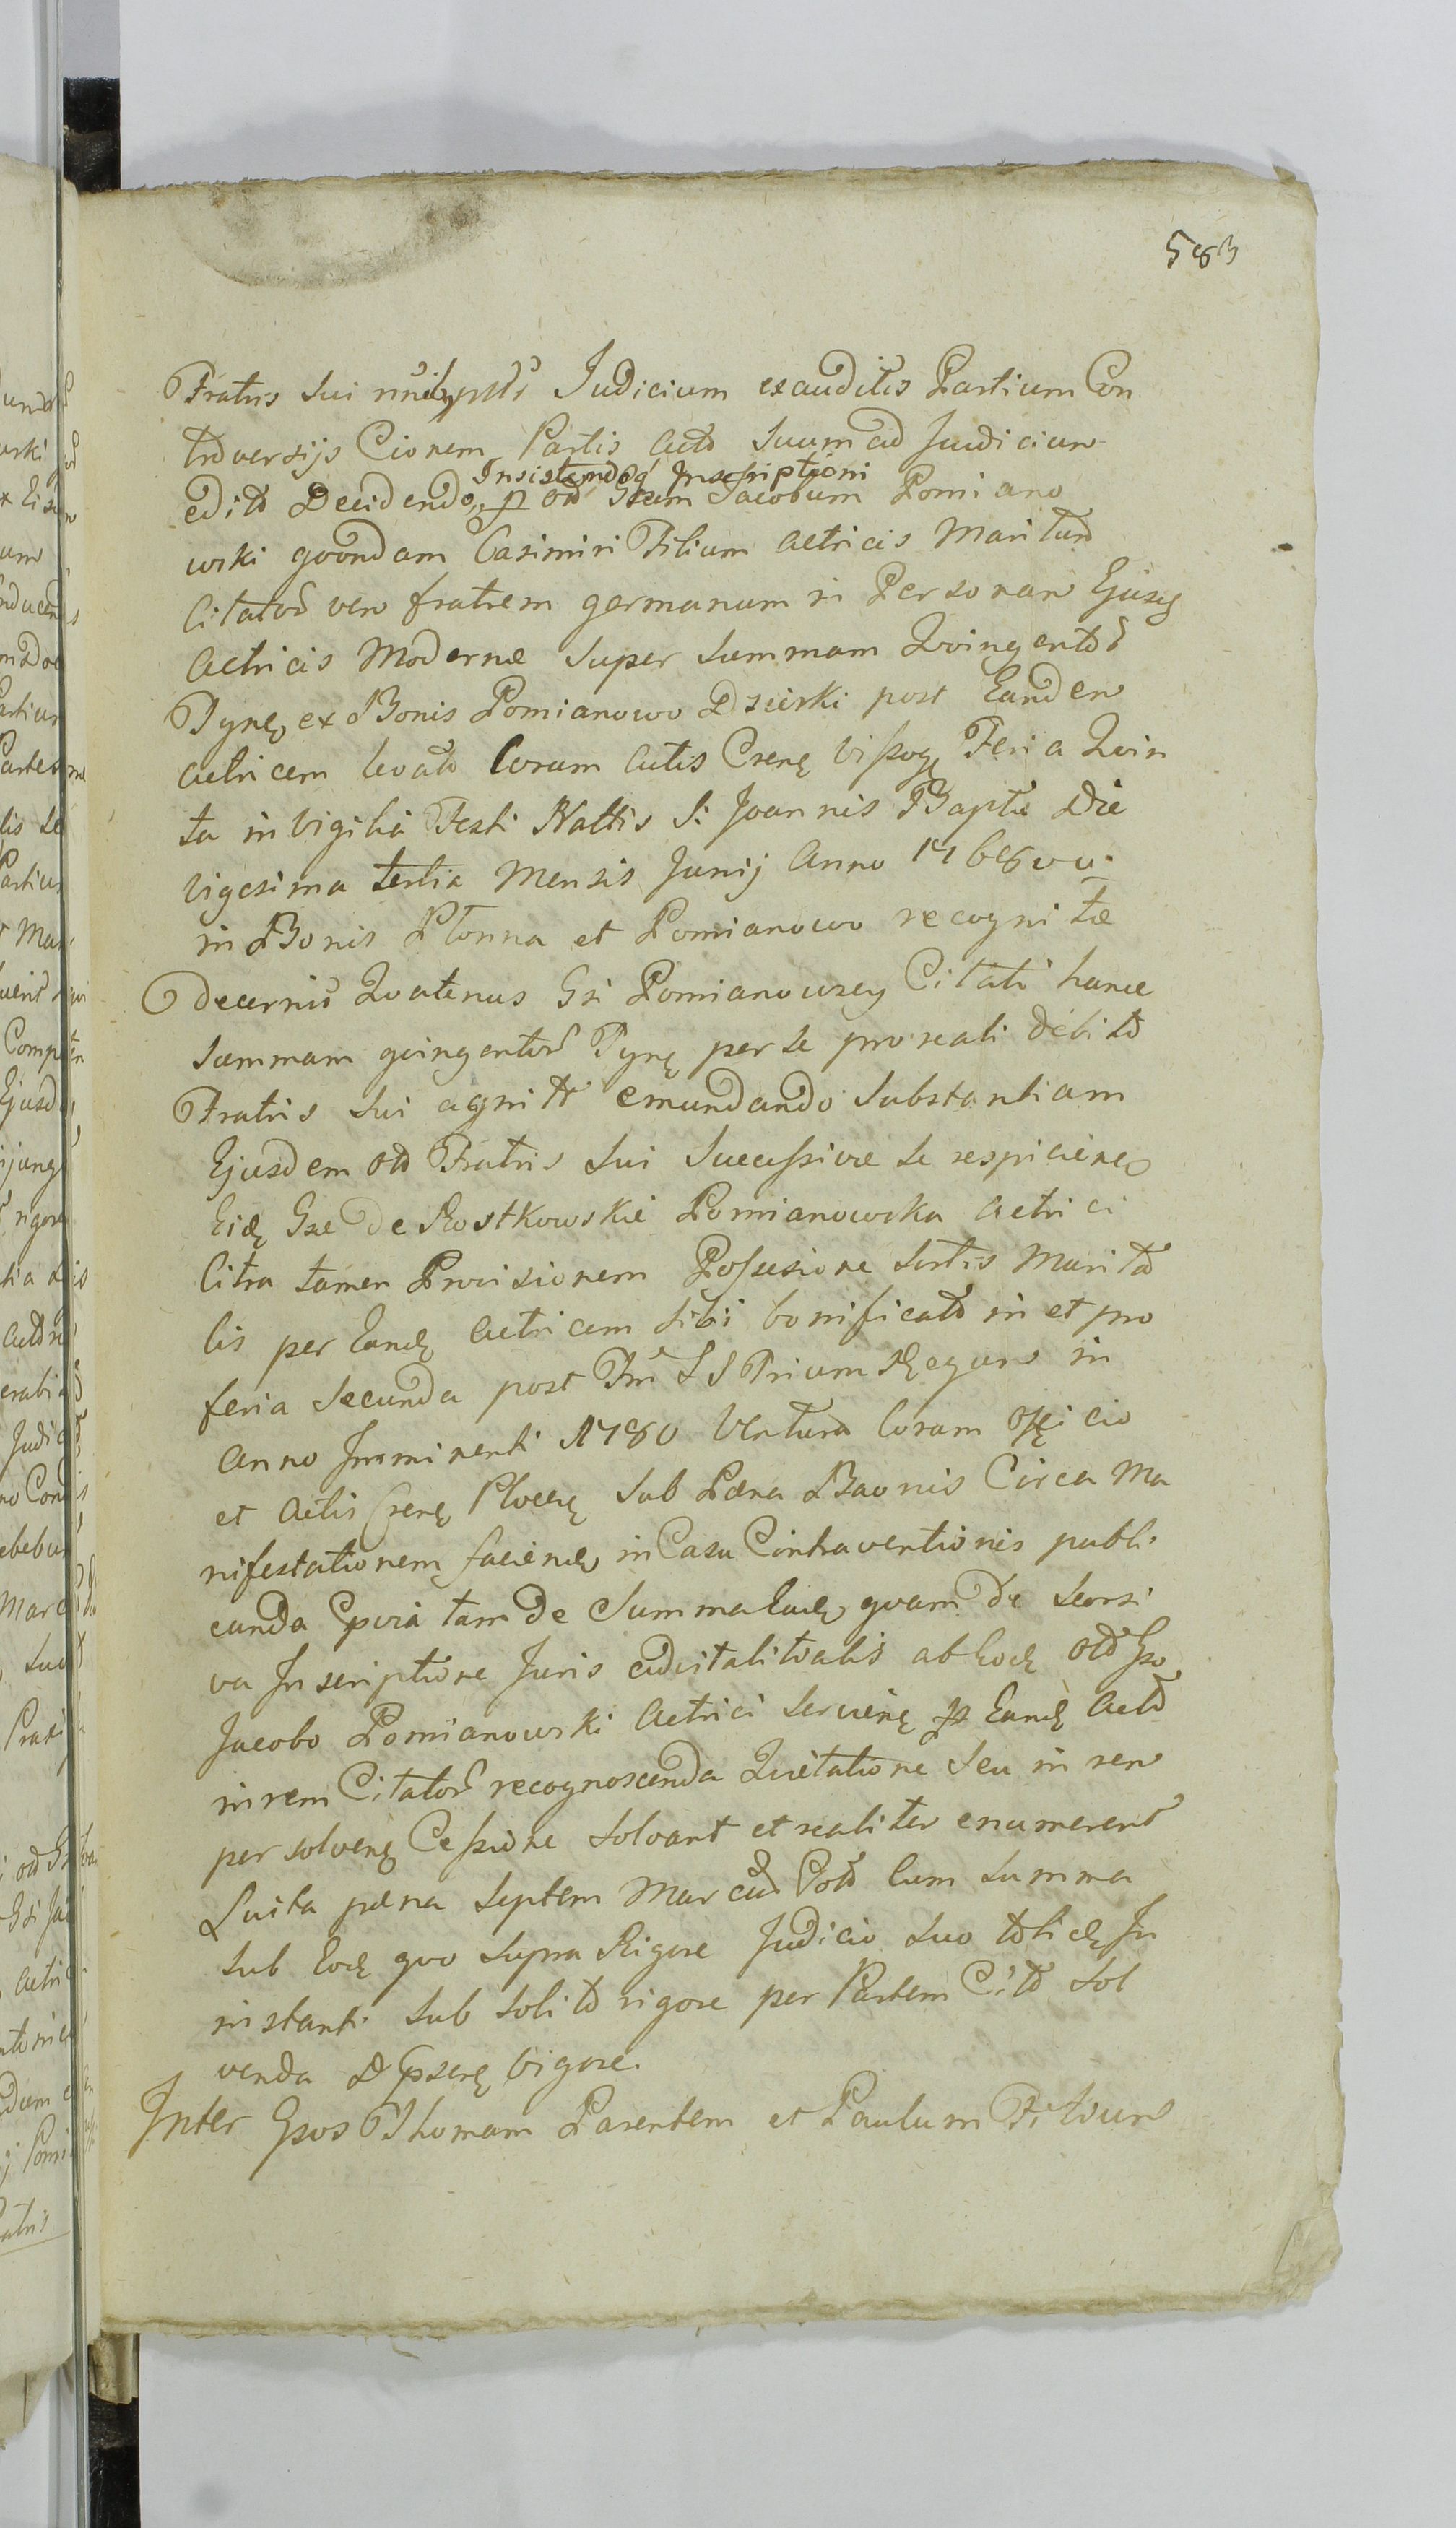 583
Fratris sui Judicium exauditis Partium Con
troversijs Cionem Partis Acto suum ad Judicium
Insistendoq Inscriptioni
edito Decidendo, p otd Gsum Jacobum Pomiano
wski qvondam Casimiri Filium Actricis Maritum
Citator vero fratrem germanum in Personam Ejusq
Actricis Modernæ Super Summam Qvingentor
Tynf ex Bonis Pomianowo Dzierki post Eandem
Actricem levato Coram Actis Csenę Feria Qvin
ta in Vigilia Festi Nattis S: Joannis Baptæ Die
vigesima tertia Mensis Junij Anno
in Bonis Płonna et Pomianowo recognitæ
Decernit Qvatenus Gsi Pomianowscy Citati hance
Summam qvingentor Tynf per se pro reali debito
Fratris sui agnito emundando Substantiam
Ejusdem otd Fratris sui Successive se respicienę
Eidę Gsæ De Rostkowskie Pomianowska Actrici
Citra tamen Provisionem Possesione Sortis Marita
lis per Eandę Actricem sibi bonificato in et pro
feria Secunda post Fm SS Trium Regum in
Anno Imminenti 1780 Ventura Coram Officio
et Actis Csenę Plocenę Sub Pæna Baonis Circa Ma
nifestationem facienę in Casu Contraventionis publi
canda tam de Summa Eadę qvam de Seorsi
va Inscriptione Juris advitalitialis ab Eodę otd Gso
Jacobo Pomianowski Actrici Servienę p Eandę Acto
in rem Citator recognoscenda Qvietatione seu in rem
persolvenę Cessione Solvant et realiter enumerent
Luita pæna Septem Marcar Poto Cum Summa
Sub Eodę qvo Supra Rigore Judicio suo totidę In
instanti Sub Solito rigore per Partem Cito Sol
venda D psenę vigore.
Inter Gsos Thomam Parentem et Paulum Filium